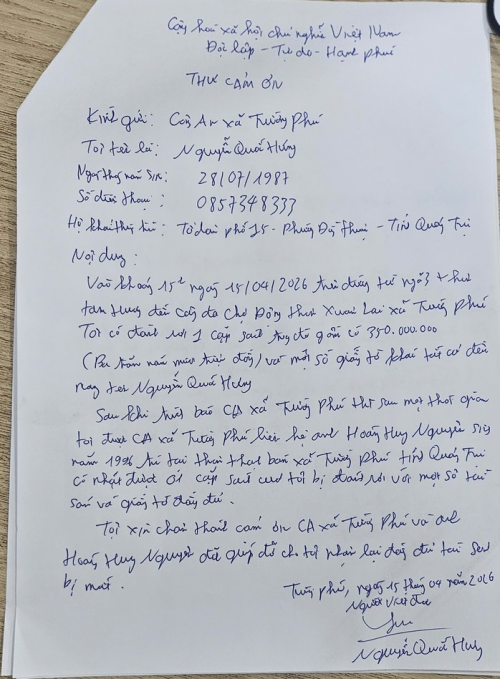 Cộng hoà xã hội chủ nghĩa Việt Nam
Độc lập - Tự do - Hạnh phúc
THƯ CẢM ƠN
Kính gửi: Công An xã Trường Phú
Tôi tên là: Nguyễn Quốc Hưng
Ngày tháng năm sinh: 28/07/1987
Số điện thoại: 0857348333
Hộ khẩu thường trú: Tổ dân phố 15 - Phường Đồng Thuận - Tỉnh Quảng Trị
Nội dung:
Vào khoảng 15h ngày 15/04/2026 trên đường từ ngã 3
đến cổng Chợ Động xã Trường Phú
Tôi có đánh rơi 1 cặp số 350.000.000
(Ba trăm năm mươi triệu đồng) và một số giấy tờ khác tất cả đều
mang tên Nguyễn Quốc Hưng
Sau khi trình báo CA xã Trường Phú thì sau một thời gian
tôi được CA xã Trường Phú liên hệ anh Hoàng Huy Nguyên sinh
năm 1996 trú tại xã Trường Phú tỉnh Quảng Trị
có nhặt được cặp tôi bị đánh rơi với một số tài
sản và giấy tờ đầy đủ.
Tôi xin chân thành cảm ơn CA xã Trường Phú và anh
Hoàng Huy Nguyên đã giúp đỡ cho tôi nhận lại đầy đủ tài sản
bị mất.
Trường Phú, ngày 15 tháng 04 năm 2026
Người viết đơn
Nguyễn Quốc Hưng